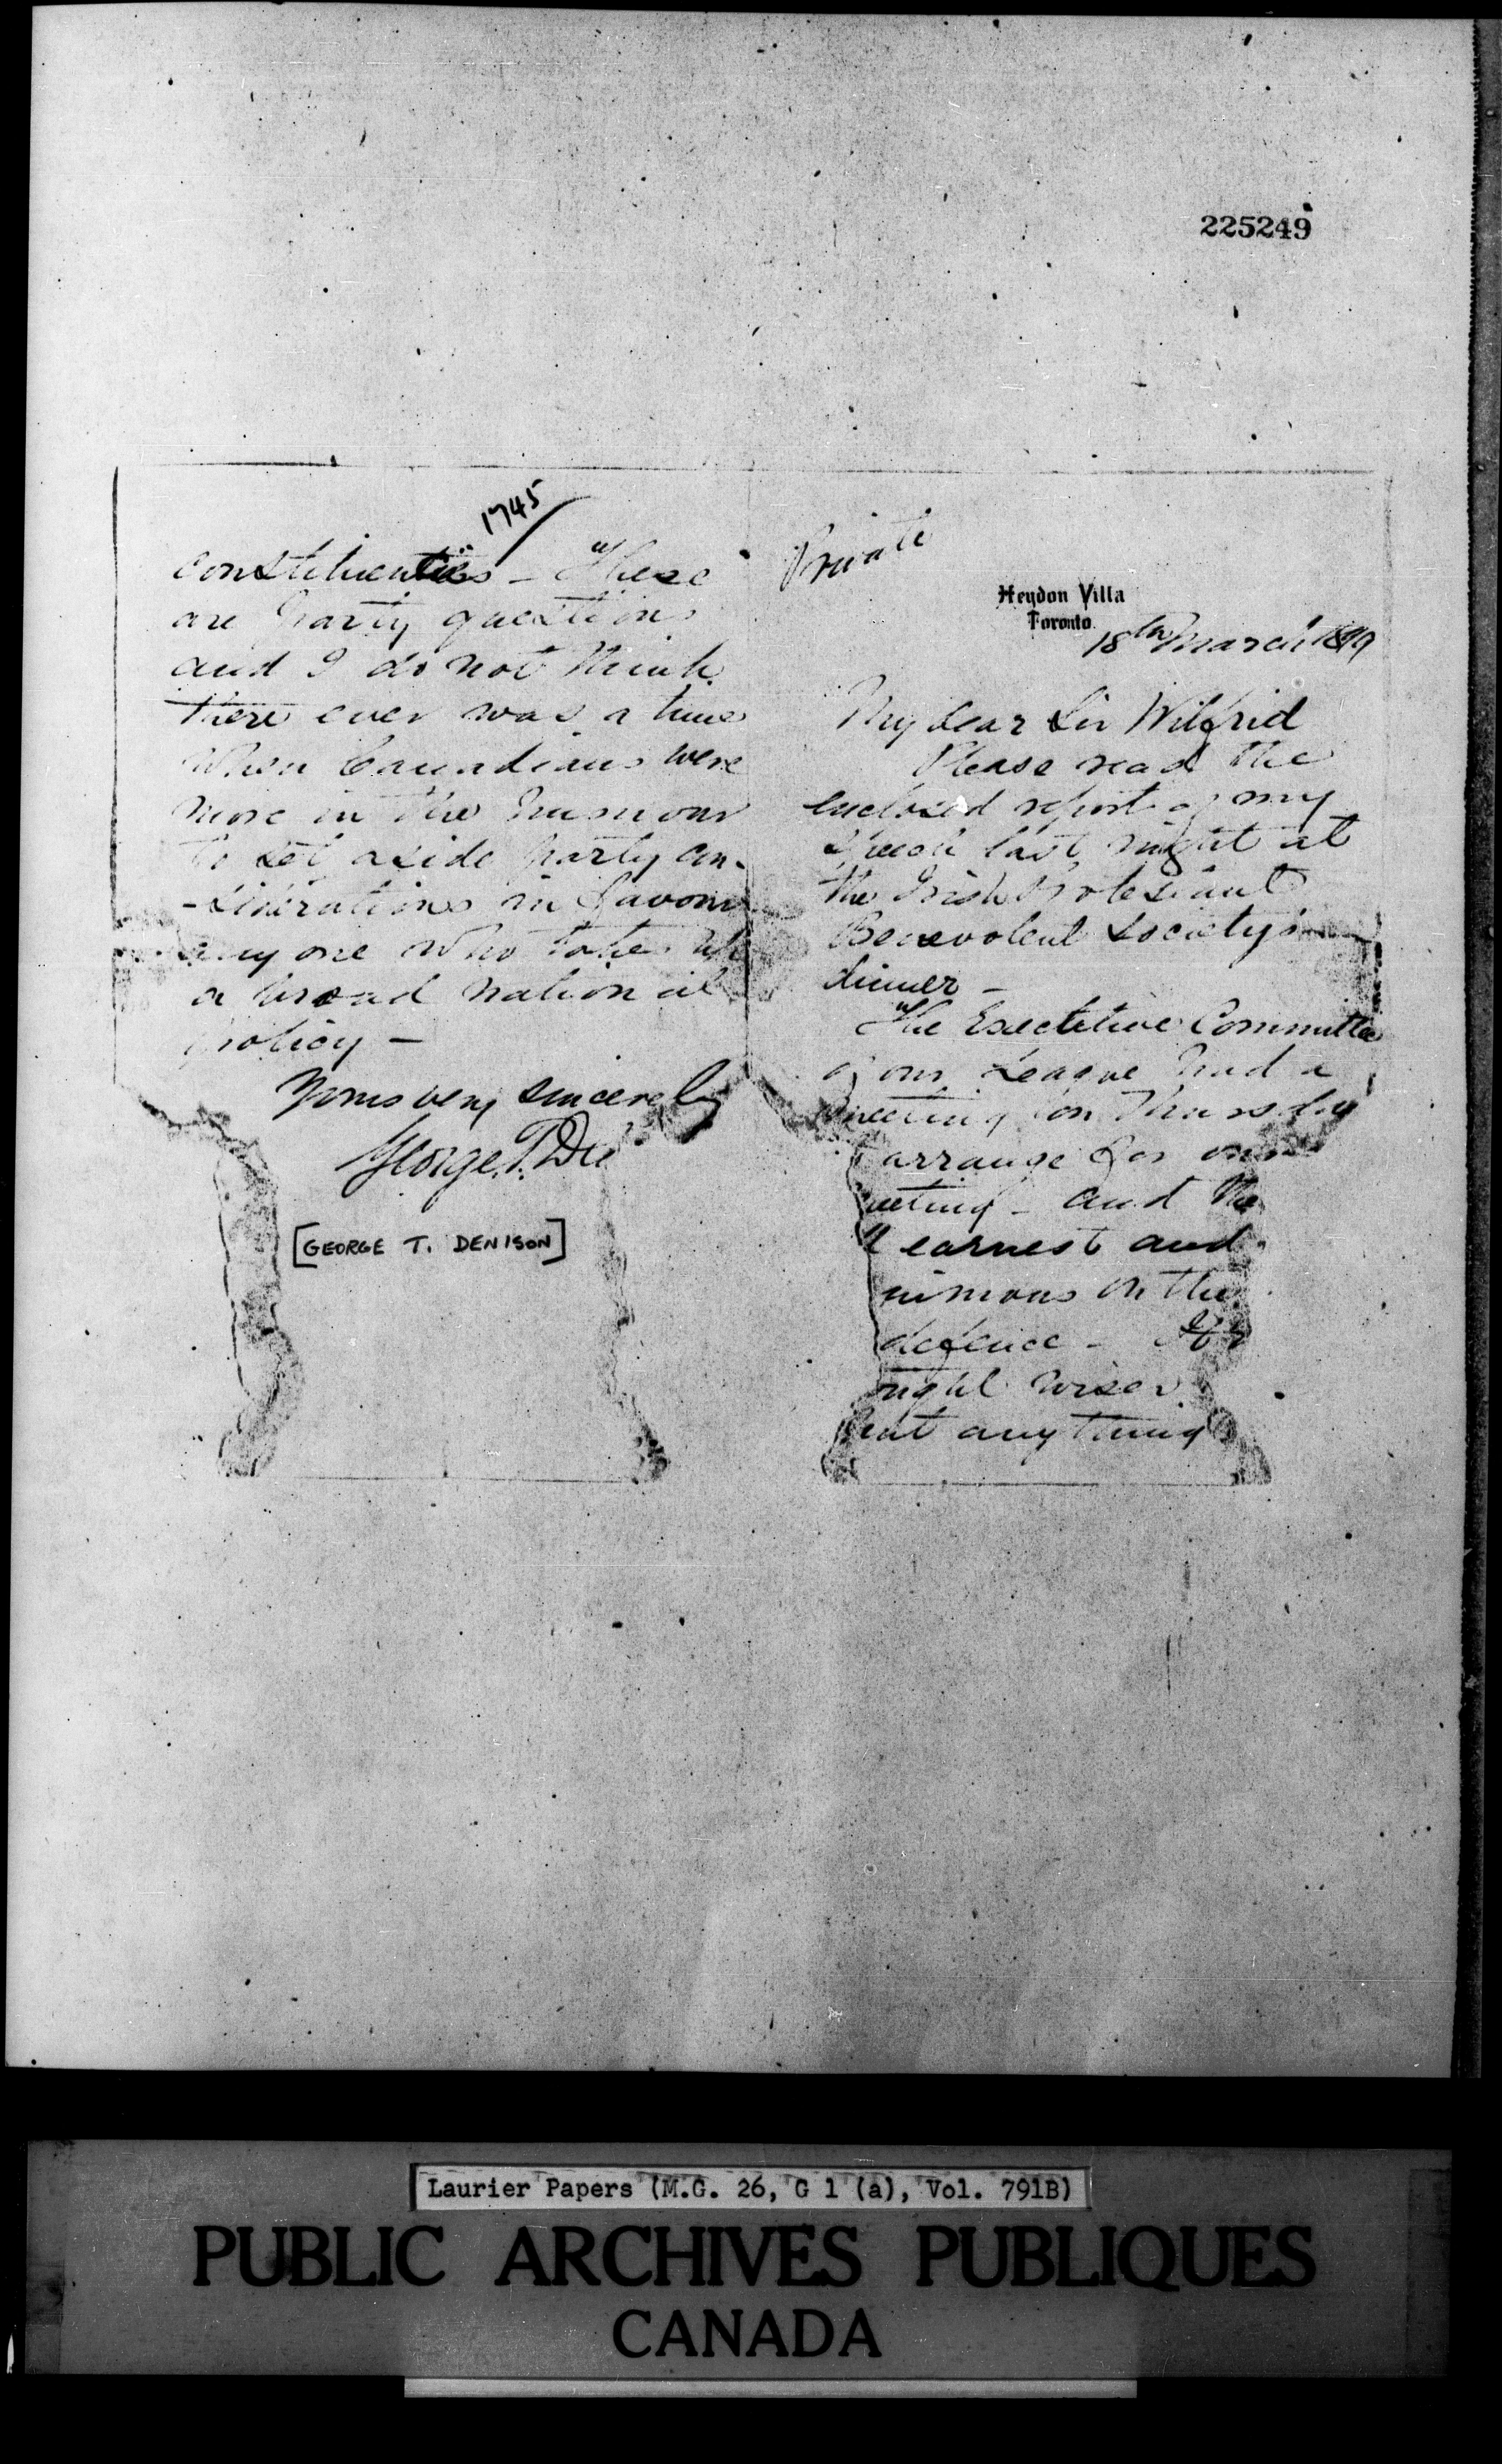 225249
Private
Heydon Villa
Toronto.
18th March 1899
My dear Sir Wilfrid
Please read the
enclosed report of my
speech last night at
the Irish Protestant
Benevolent Society's
dinner -
The Executive Committee
of our League had a
meeting on Thursday
arrange for our
eting - and the
earnest and
nimous on the
defence - If
might wiser
anything
1745
constituencies - These
are party questions
and I do not think
there ever was a time
when Canadians were
more in the humour
to set aside party con-
-siderations in favour
any one who takes up
a broad national
policy -
Yours very sincerely
George T. De
[GEORGE T. DENISON]
Laurier Papers (M.G. 26, G 1 (a), Vol. 791B)
PUBLIC ARCHIVES PUBLIQUES
CANADA